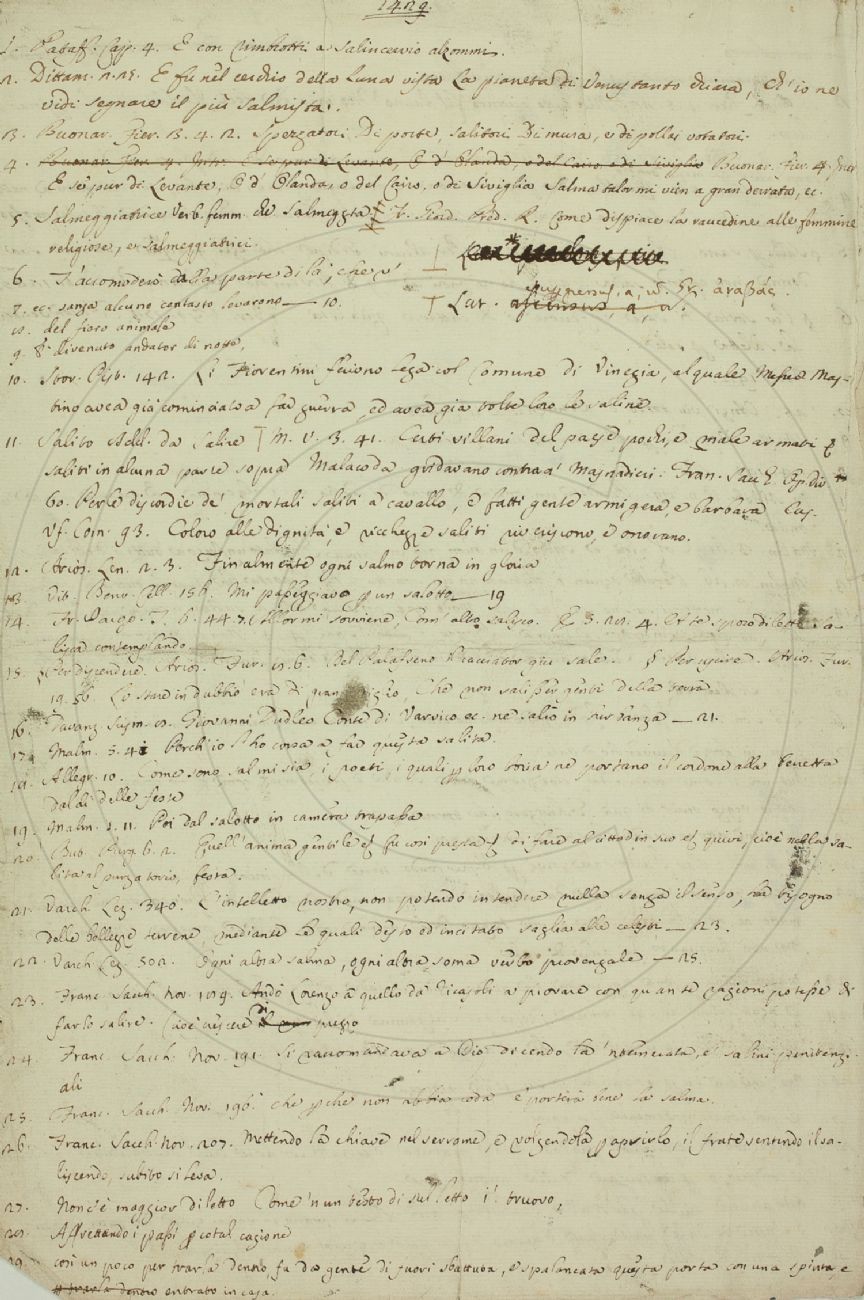 1429.
1. Pataff. Cap. 4. E con zimbotti a salincervio alzommi.
2. Dittam. 2. 25. E fu nel cerchio della Luna vista La pianeta di Venus tanto chiara, ch'io ne
vidi segnare il più salmista.
3. Buonar. Fier. 3. 4. 2. Spezzatori Di porte, salitori Di mura, e di pollai votatori.
4. Buonar. Fier. 4. Intr. E se pur di Levante, O d'Olanda, o del Cairo, o di Siviglia Buonar. Fier. 4. Intr.
E se pur di Levante, O d'Olanda, o del Cairo, o di Siviglia Salma talor mi vien a gran derrata, ec.
5. Salmeggiatrice Verb. femm. che salmeggia Fr. Giord. Pred. R. Come dispiace la raucedine alle femmine
religiose, e salmeggiatrici.
6. T'accomoderò dalla parte di là, che v'
7. ec. sanza alcuno contasto levarono — 10.
Lat.
8. del fiero animale
9. È divenuto andator di notte,
10. Stor. Pist. 142. Li Fiorentini feciono lega col Comune di Vinegia, al quale Messer Mas-
tino avea già cominciata a far guerra, ed avea già tolte loro le saline.
11. Salito Add. da Salire M. V. 3. 41. Certi villani del paese pochi, e male armati
saliti in alcuna parte sopra Malacoda gridavano contra a' masnadieri. Fran. Sacch. Op. div.
60. Per le discordie de' mortali saliti a cavallo, e fatti gente armigera, e barbara Cas.
Uf. Com. 93. Coloro alle dignità, e ricchezze saliti riveriscono, e onorano.
12. Arios. Len. 2. 3. Finalmente ogni salmo torna in gloria
13. Vit. Benv. Cell. 156. Mi passeggiavo p un salotto — 19
14. Fr. Iacop. T. 6. 44. 7. Allor mi sovviene, Com' alto salisco. E 3. 4. Et te sposo diletto sa-
lisca contemplando.
15. Per discendere. Arios. Fur. 6. Del palafreno il cacciator giù sale. § Per uscire. Arios. Fur.
19. 56. Lo stare in dubbio era di gran periglio, Che non salisser genti della terra
16. Davanz. Scism. Giovanni Dudleo Conte di Varvico ec. ne salio in burbanza — 21.
17. Malm. 3. 4 Perch'io l'ho corsa a far questa salita
18. Allegr. 10. Come sono salmisia, i poeti, i quali p loro boria ne portano il cordone alla berretta
dal dì delle feste
19. Malm. 1. 11. Poi dal salotto in camera trapassa
20. But. Purg. 6. 2. Quell'anima gentile fu così presta di fare al cittadin suo quivi, cioè nella sa-
lita al purgatorio, festa.
21. Varch. Lez. 340. L'intelletto nostro, non potendo intendere nulla senza il senso, ha bisogno
delle bellezze terrene, mediante le quali desto ed incitato saglia alle celesti — 23.
22. Varch. Lez. 502. Ogni altra salma, ogni altra soma verbo provenzale — 25.
23. Franc. Sacch. Nov. Andò Lorenzo a quello da Ricasoli a provare con quante ragioni potesse di
farlo salire. Cioè crescere di prezzo
24. Franc. Sacch. Nov. 191. Si raccomandava a Dio dicendo la 'ntemerata, e' salmi penitenzi-
ali
25. Franc. Sacch. Nov. 196. che p che non abbia coda e' porterà bene la salma.
26. Franc. Sacch. Nov. 207. Mettendo la chiave nel serrome, e volgendola p aprirlo, il frate sentendo il sa-
liscendo, subito si leva.
27. Non c'è maggior diletto Come 'n un testo di sul letto i' truovo,
28. Affrettando i passi p cotal cagione
29. così un poco per trarla dentro fu da gente di fuori sbattuta, e spalancata questa porta con una spinta, e
trarla dentro entrato in casa.